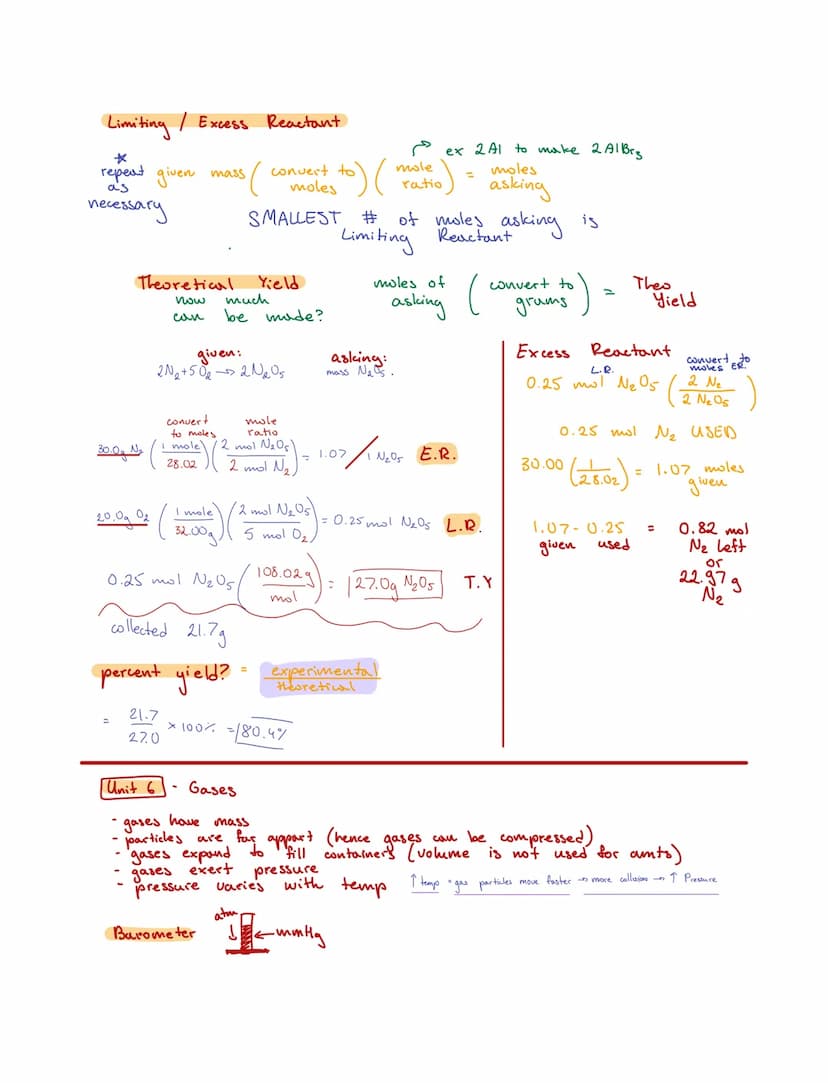 Limiting / Excess Reactant
ex 2Al to make 2AlBr₃
* repeat as necessary
given mass (convert to moles) (mole ratio) = moles asking
SMALLEST # of moles asking is
Limiting Reactant
Theoretical Yield
how much
can be made?
moles of asking (convert to grams) = Theo Yield
given:
2N₂+5O₂ → 2N₂O₅
asking:
mass N₂O₅.
convert to moles
mole ratio
30.0g N₂ (1 mole / 28.02) (2 mol N₂O₅ / 2 mol N₂) = 1.07 / N₂O₅ E.R.
20.0g O₂ (1 mole / 32.00g) (2 mol N₂O₅ / 5 mol O₂) = 0.25 mol N₂O₅ L.R.
0.25 mol N₂O₅ (108.02g / mol) = 27.0g N₂O₅ T.Y
collected 21.7g
percent yield? = experimental / theoretical
= 21.7 / 27.0 × 100% = 80.4%
Excess Reactant
L.R.
convert to moles E.R.
0.25 mol N₂O₅ (2 N₂ / 2 N₂O₅)
0.25 mol N₂ USED
30.00 (1 / 28.02) = 1.07 moles given
1.07 - 0.25 = 0.82 mol
given used N₂ left
or
22.97 g
N₂
Unit 6 - Gases
- gases have mass
- particles are far appart (hence gases can be compressed)
- gases expand to fill containers (volume is not used for amts)
- gases exert pressure
- pressure varies with temp ↑ temp = gas particles move faster → more collision → ↑ Pressure
Barometer
atm
mmHg